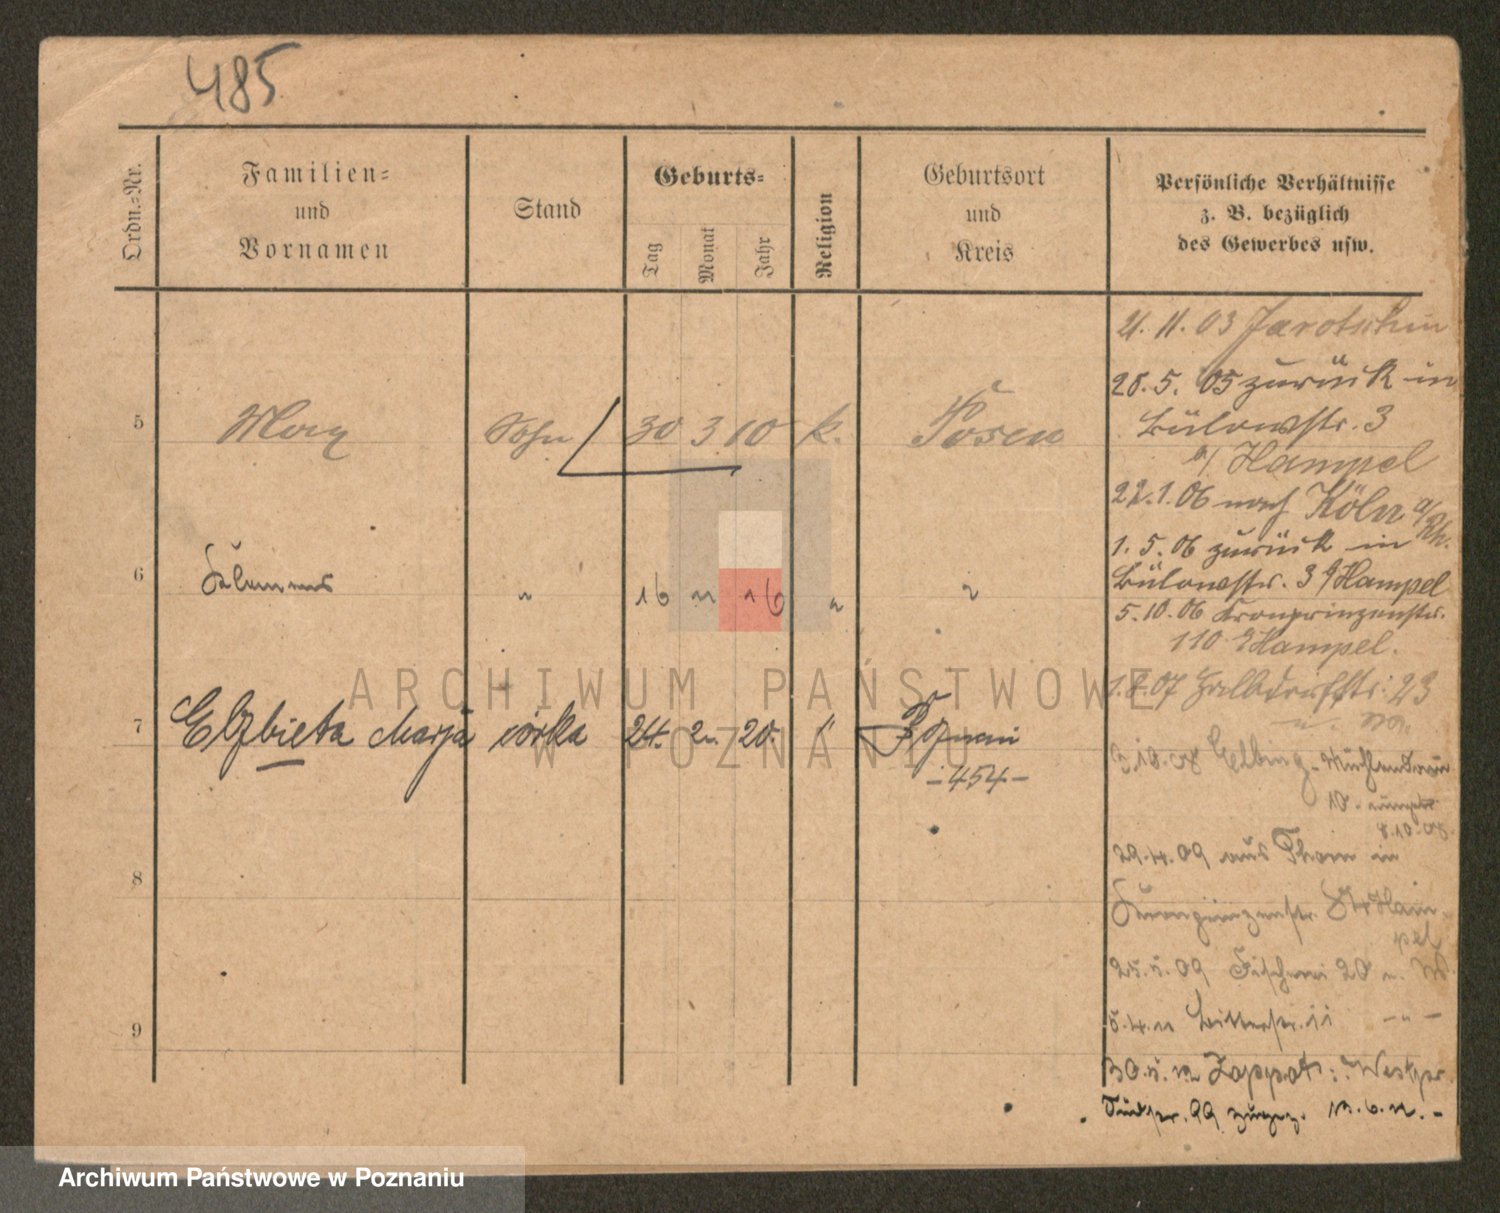 485
Ordn.=Nr.
Familien=
und
Vornamen
Stand
Geburts=
Tag
Monat
Jahr
Religion
Geburtsort
und
Kreis
Persönliche Verhältnisse
z. B. bezüglich
des Gewerbes usw.
21. 11. 03 Jarotschin
28. 5. 05 zurück in
Bülowstr. 3
b/ Hampel
22. 1. 06 nach Köln a/Rh.
1. 5. 06 zurück in
Bülowstr. 3 b/ Hampel
5. 10. 06 Kronprinzenstr.
110 Hampel.
07 Halbdorfstr. 23
10. 08 Elbing
10.
8.10.08.
29.4.09 aus Thorn in
Kronprinzenstr. Ham-
pel
25. 09 Fischerei 20
5.4. Bitterstr. 11 - " -
30. Zoppot: Westpr.
99
5 Max Sohn 30 3 10 k. Posen
6 Klemens " 16 16 " "
7 Elżbieta Marja córka 24. 2. 20. " Poznań
- 454 -
8
9
ARCHIWUM PAŃSTWOWE
W POZNANIU
Archiwum Państwowe w Poznaniu